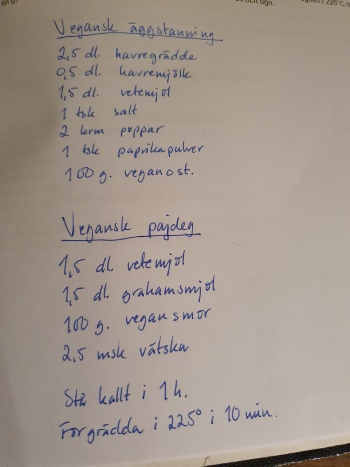 Vegansk äggstanning
2,5 dl. havregrädde
0,5 dl. havremjölk
1,5 dl. vetemjöl
1 tsk salt
2 krm peppar
1 tsk paprikapulver
100 g. veganost.
Vegansk pajdeg
1,5 dl. vetemjöl
1,5 dl. grahamsmjöl
100 g. vegansmör
2,5 msk vätska
Stå kallt i 1 h.
Förgrädda i 225° i 10 min.